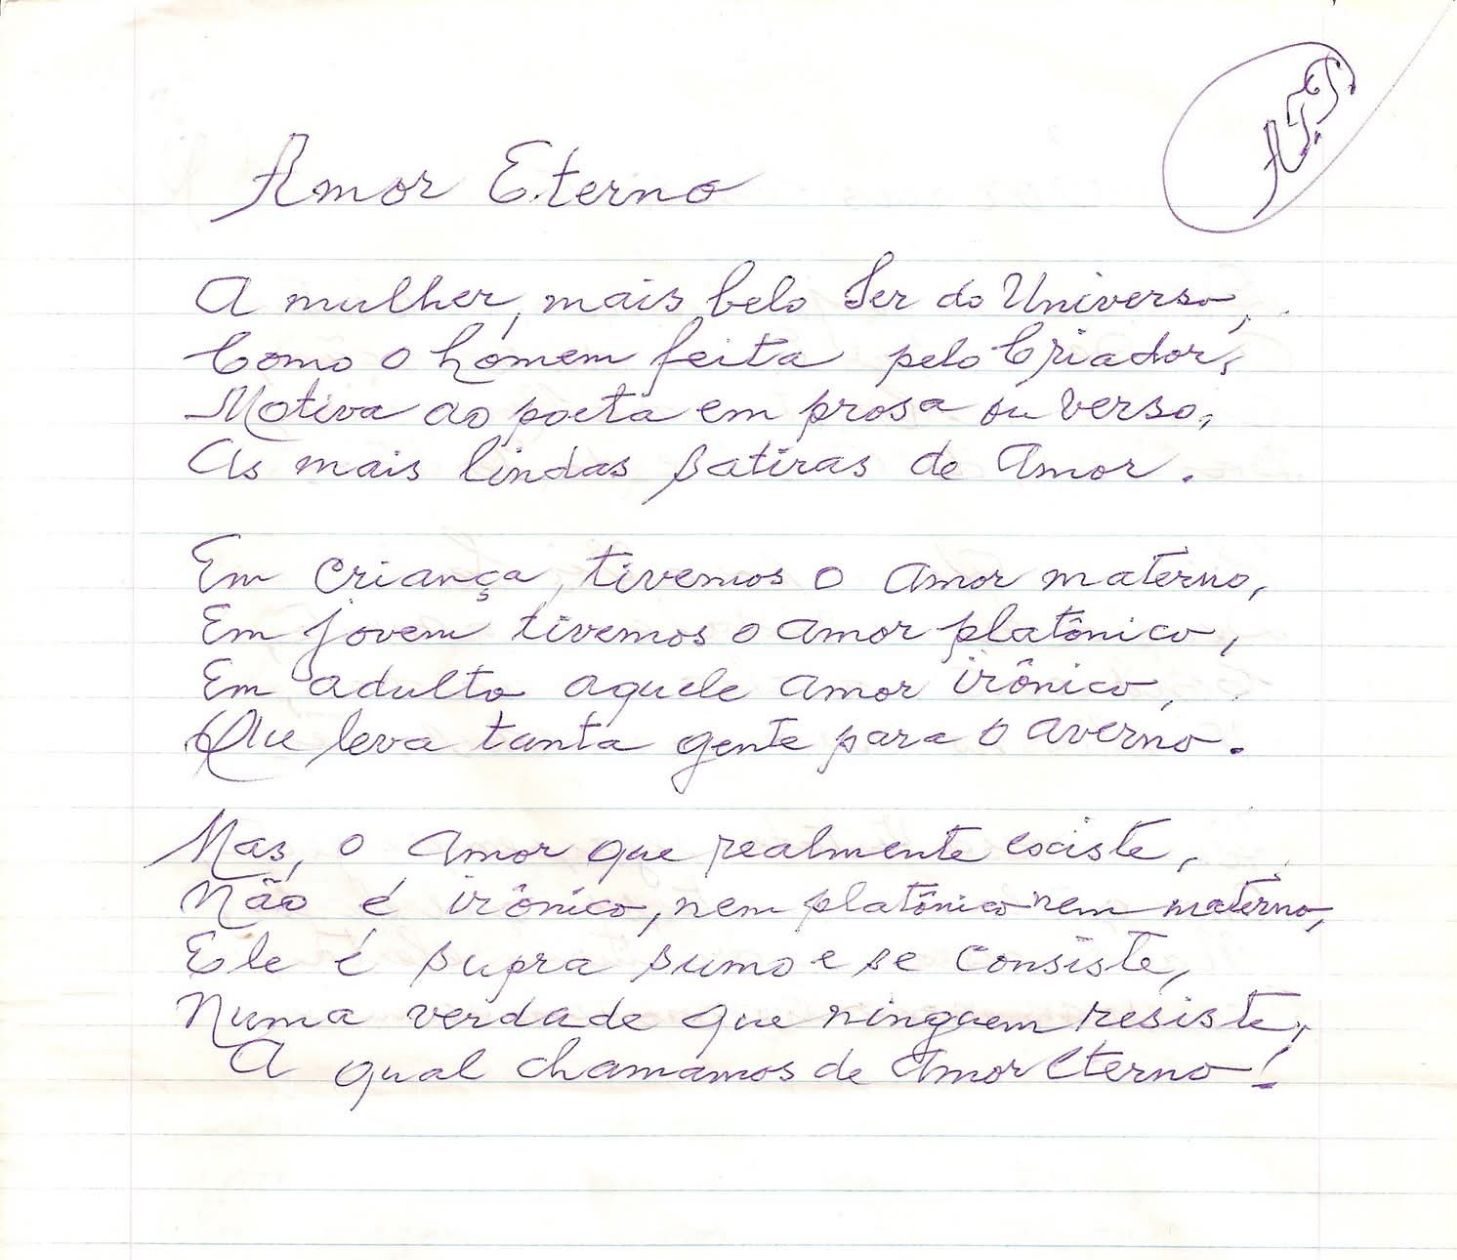 Amor Eterno
A mulher, mais belo Ser do Universo,
Como o homem feita pelo Criador,
Motiva ao poeta em prosa ou verso,
As mais lindas satiras de Amor.
Em criança, tivemos o amor materno,
Em jovem tivemos o amor platônico,
Em adulto aquele amor irônico,
Que leva tanta gente para o averno.
Mas, o amor que realmente existe,
Não é irônico, nem platônico nem materno,
Ele é supra sumo e se consiste,
Numa verdade que ninguem resiste,
A qual chamamos de Amor Eterno!